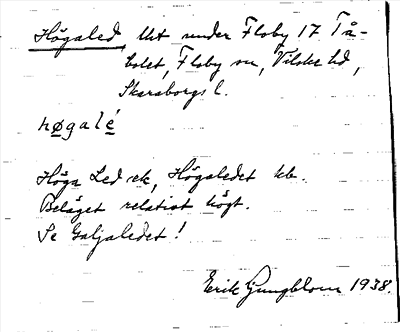 Högaled, Ut under Floby 17 Tå-
bolet, Floby sn, Vilske hd,
Skaraborgs l.
høgalé
Höga Led ek, Högaledet kb.
Beläget relativt högt.
Se Galjaledet!
Erik Ljungblom 1938.